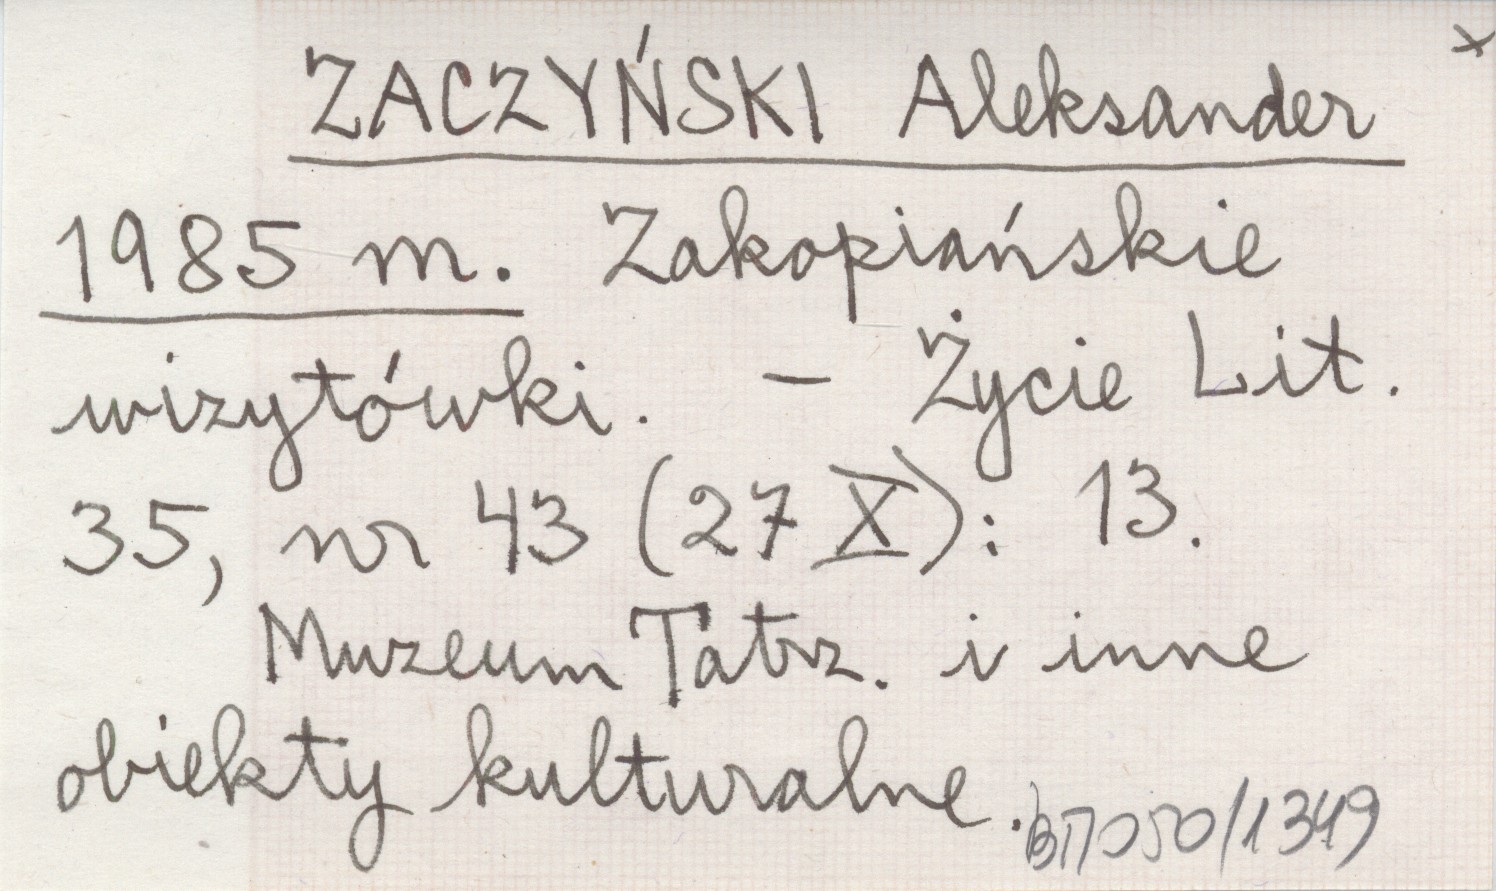 x
ZACZYŃSKI Aleksander
1985 m. Zakopiańskie
wizytówki. – Życie Lit.
35, nr 43 (27 X): 13.
Muzeum Tatrz. i inne
obiekty kulturalne.
050/1349